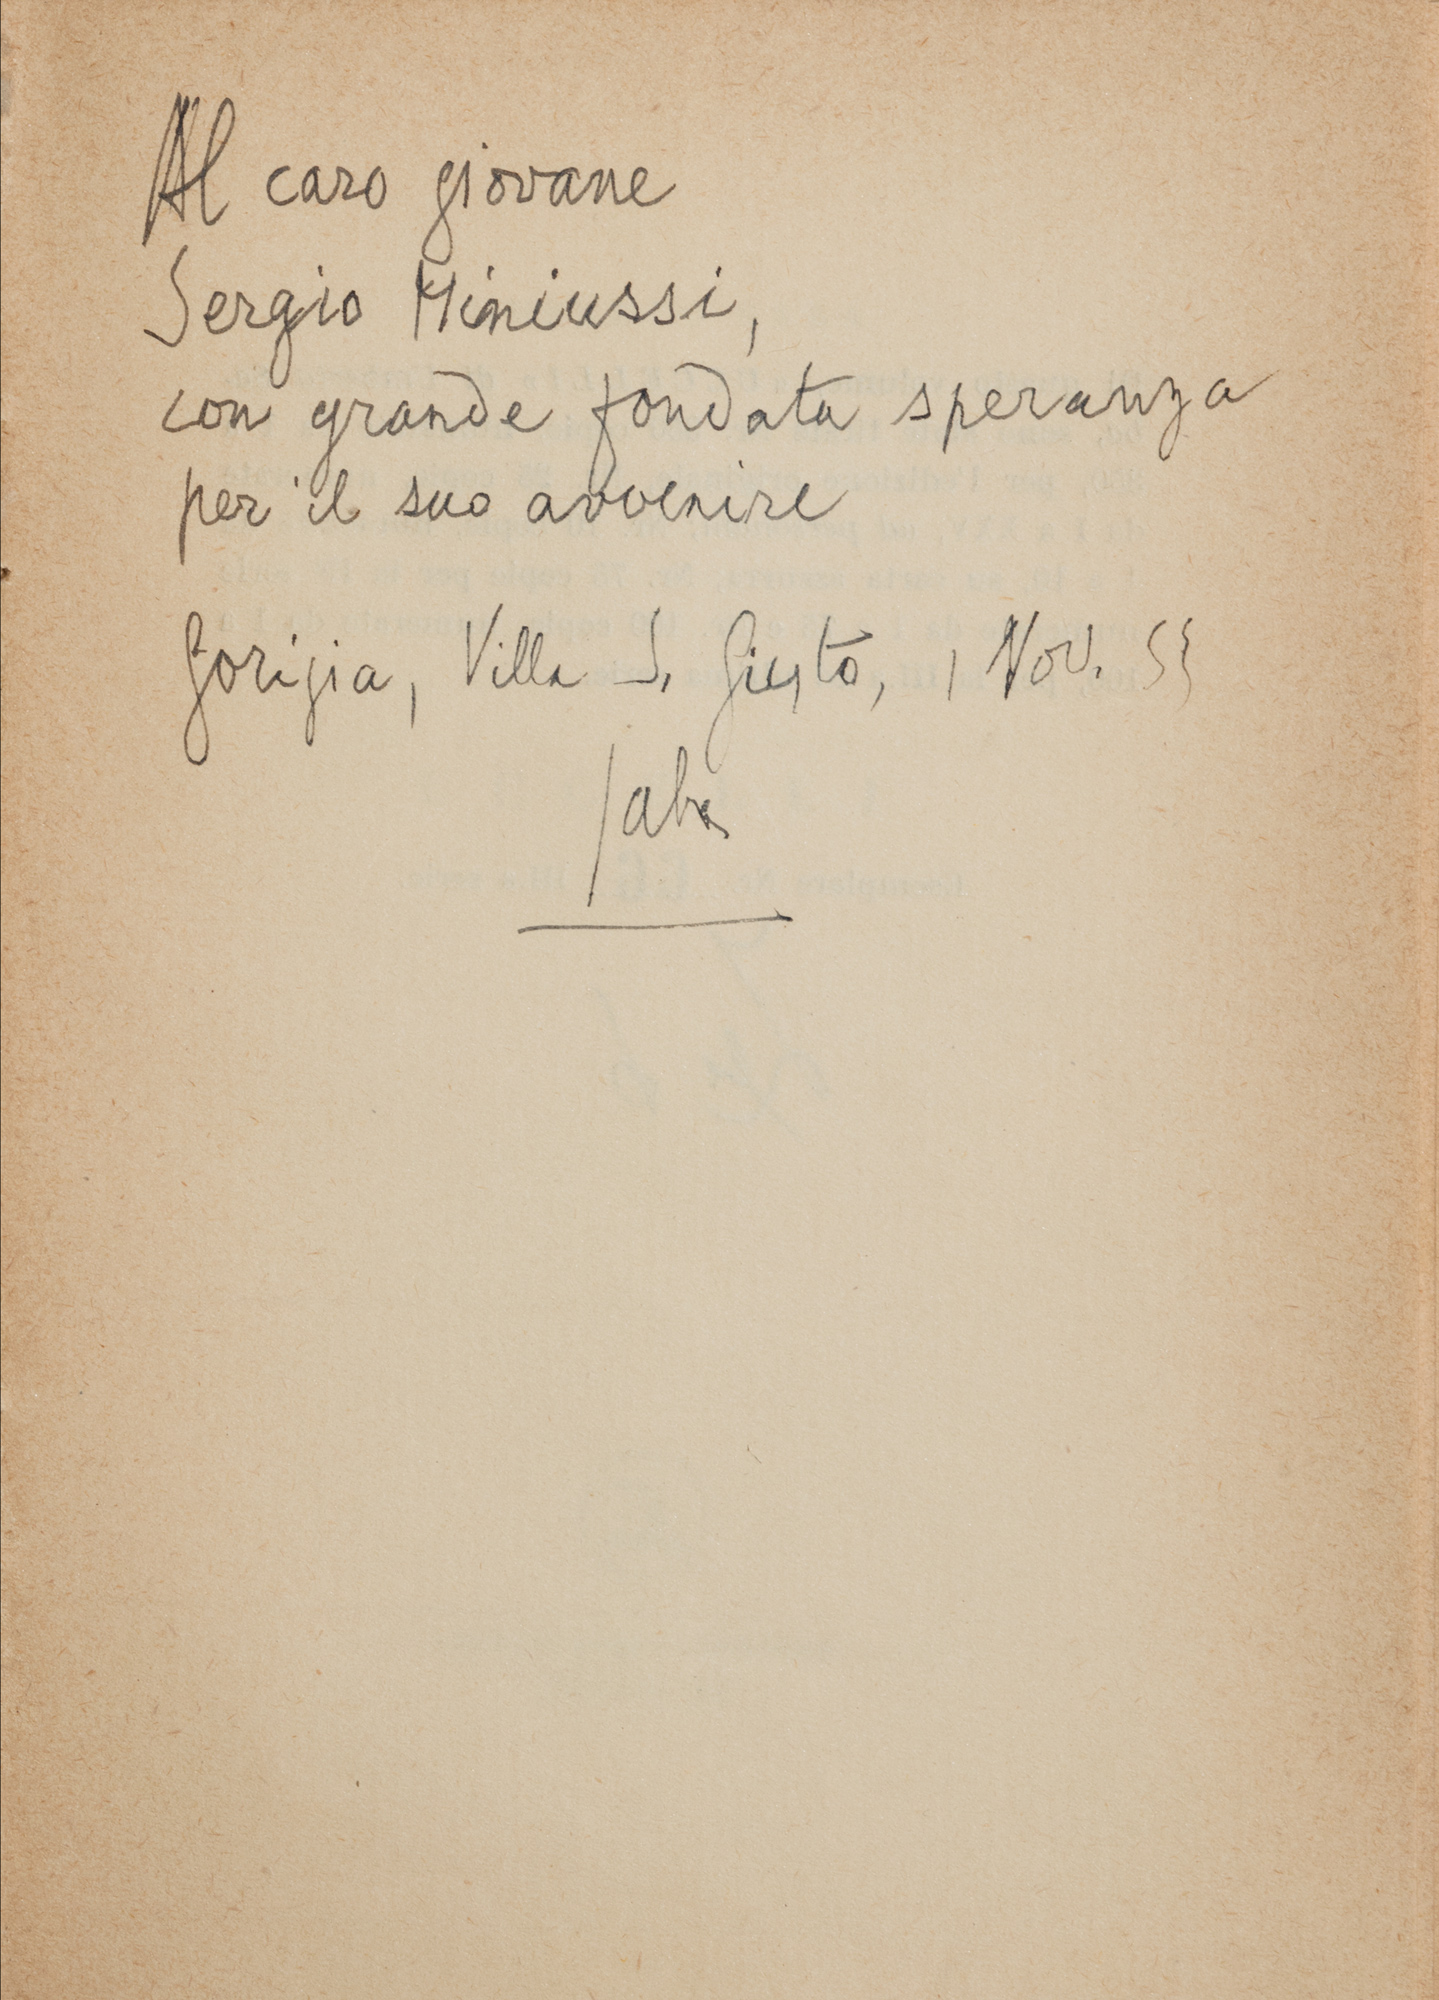 Al caro giovane
Sergio Miniussi,
con grande fondata speranza
per il suo avvenire
Gorizia, Villa S. Giusto, 1 Nov. 55
Saba